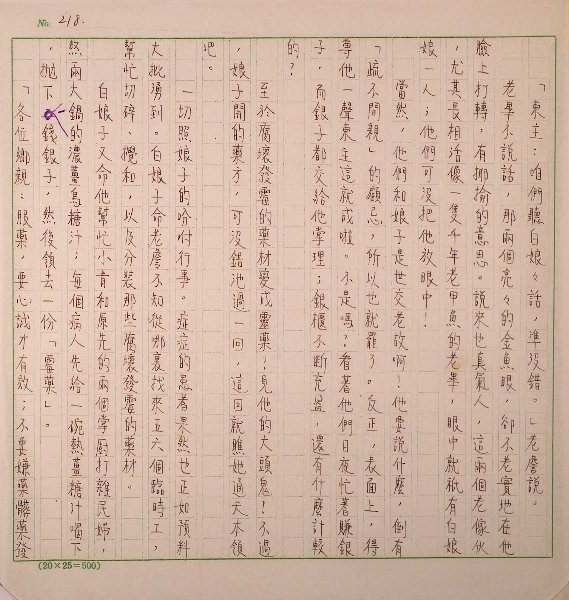 No. 218.
「東主:咱們聽白娘々話,準沒錯。」老詹說。
老畢不說話,那兩個亮々的金魚眼,卻不老實地在他
臉上打轉,有揶揄的意思。說來也真氣人,這兩個老傢伙
,尤其長相活像一隻千年老甲魚的老畢,眼中就祇有白娘
娘一人;他們可沒把他放眼中!
當然,他們和娘子是世交老故啊!他要說什麼,倒有
「疏不間親」的顧忌,所以也就罷了。反正,表面上,得
尊他一聲東主這就成啦。不是嗎?看著他們日夜忙著賺銀
子,而銀子都交給他掌理;銀櫃不斷充盈,還有什麼計較
的?
至於腐壞發霉的藥材變成靈藥;見他的大頭鬼!不過
,娘子開的藥方,可沒錯池過一回,這回就瞧她通天本領
吧。
一切照娘子的吩咐行事。症症的患者果然也正如預料
大批湧到。白娘子命老詹不知從哪裏找來五六個臨時工,
幫忙切碎、攪和,以及分裝那些腐壞發霉的藥材。
白娘子又命他幫忙小青和原先的兩個掌廚打雜民婦,
熬兩大鍋的濃薑烏糖汁;每個病人先給一碗熱薑糖汁喝下
,拋下錢銀子,然後領去一份「靈藥」。
「各位鄉親:服藥,要心誠才有效;不要嫌藥髒藥發
(20×25=500)